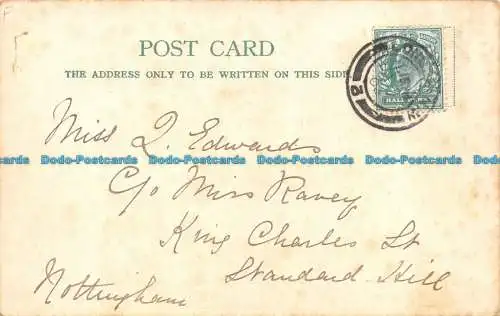 POST CARD
THE ADDRESS ONLY TO BE WRITTEN ON THIS SIDE
HALF
Miss Q. Edwards
Dodo-Postcards Dodo-Postcards Dodo-Postcards Dodo-Postcards Dodo-Postcards
C/o Miss Ravey
King Charles St
Standard Hill
Nottingham